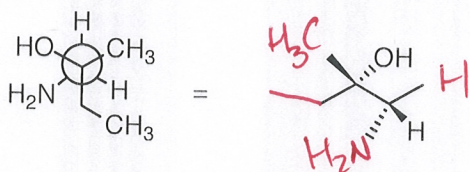 H
HO CH₃
H₂N H
CH₃
=
H₃C
OH
H
H
H₂N